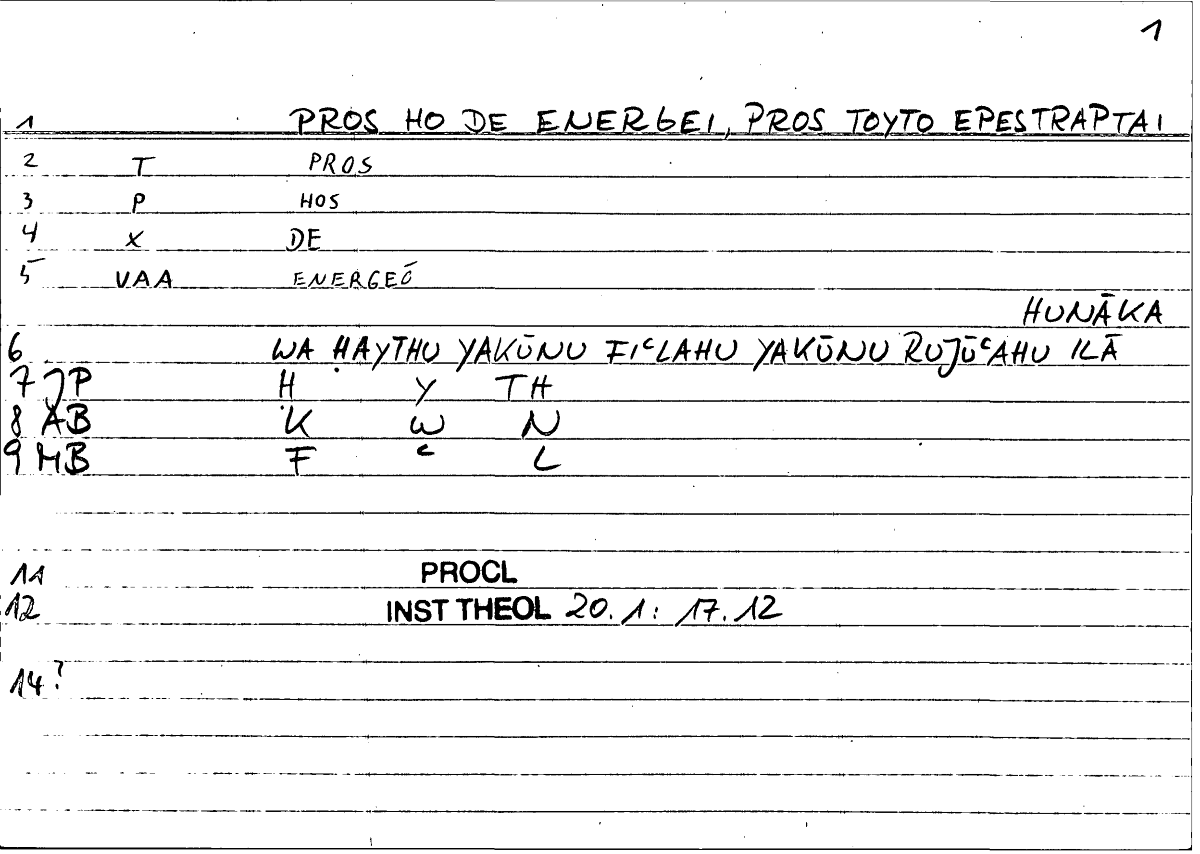 1
1 PROS HO DE ENERGEI, PROS TOYTO EPESTRAPTAI
2 T PROS
3 P HOS
4 X DE
5 VAA ENERGEŌ
HUNĀKA
6 WA ḤAYTHU YAKŪNU FIᶜLAHU YAKŪNU RUJŪᶜAHU ILĀ
7 JP Ḥ Y TH
8 AB K W N
9 MB F ᶜ L
11 PROCL
12 INST THEOL 20.1: 17.12
14?